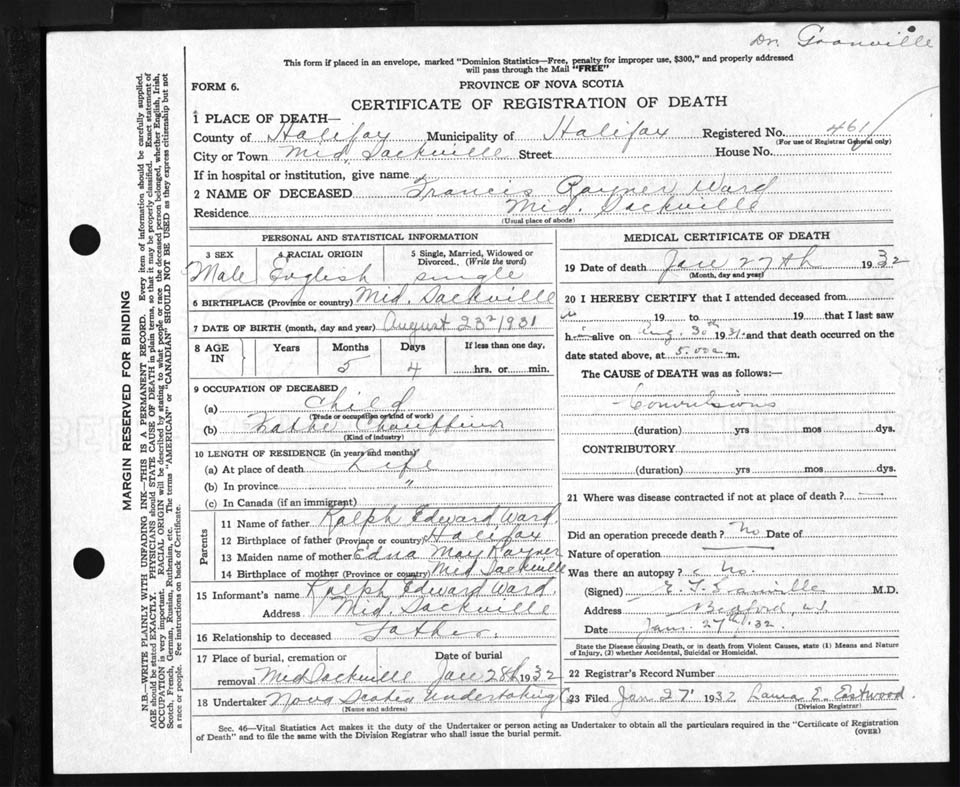 Dr. Granville
This form if placed in an envelope, marked "Dominion Statistics—Free, penalty for improper use, $300," and properly addressed
will pass through the Mail "FREE"
FORM 6.
PROVINCE OF NOVA SCOTIA
CERTIFICATE OF REGISTRATION OF DEATH
1 PLACE OF DEATH—
County of Halifax Municipality of Halifax Registered No. 461
(For use of Registrar General only)
City or Town Mid. Sackville Street House No.
If in hospital or institution, give name
2 NAME OF DECEASED Francis Rayner Ward
Residence Mid. Sackville
(Usual place of abode)
PERSONAL AND STATISTICAL INFORMATION
3 SEX 4 RACIAL ORIGIN 5 Single, Married, Widowed or Divorced. (Write the word)
Male English single
6 BIRTHPLACE (Province or country) Mid. Sackville
7 DATE OF BIRTH (month, day and year) August 23rd 1931
8 AGE IN Years Months Days If less than one day,
5 4 hrs. or min.
9 OCCUPATION OF DECEASED
(a) Child
(Trade or occupation or kind of work)
(b) Father Chauffeur
(Kind of industry)
10 LENGTH OF RESIDENCE (in years and months)
(a) At place of death Life
(b) In province "
(c) In Canada (if an immigrant)
Parents
11 Name of father Ralph Edward Ward
12 Birthplace of father (Province or country) Halifax
13 Maiden name of mother Edna May Rayner
14 Birthplace of mother (Province or country) Mid Sackville
15 Informant's name Ralph Edward Ward.
Address Mid. Sackville
16 Relationship to deceased Father.
17 Place of burial, cremation or removal Date of burial
Mid Sackville Jan 28th 1932
18 Undertaker Nova Scotia Undertaking Co
(Name and address)
MEDICAL CERTIFICATE OF DEATH
19 Date of death Jan 27th 1932
(Month, day and year)
20 I HEREBY CERTIFY that I attended deceased from
19 to 19 that I last saw
him alive on Aug. 30th 1931 and that death occurred on the
date stated above, at 5.00 a m.
The CAUSE of DEATH was as follows:—
Convulsions
(duration) yrs mos dys.
CONTRIBUTORY
(duration) yrs mos dys.
21 Where was disease contracted if not at place of death?
Did an operation precede death? No Date of
Nature of operation
Was there an autopsy? No.
(Signed) M.D.
Address Bedford, N.S.
Date Jan. 27th, 32.
State the Disease causing Death, or in death from Violent Causes, state (1) Means and Nature of Injury, (2) whether Accidental, Suicidal or Homicidal.
22 Registrar's Record Number
23 Filed Jan 27' 1932 Laura E. Eastwood.
(Division Registrar)
Sec. 46—Vital Statistics Act makes it the duty of the Undertaker or person acting as Undertaker to obtain all the particulars required in the "Certificate of Registration
of Death" and to file the same with the Division Registrar who shall issue the burial permit.
(OVER)
MARGIN RESERVED FOR BINDING
N.B.—WRITE PLAINLY WITH UNFADING INK—THIS IS A PERMANENT RECORD. Every item of information should be carefully supplied.
AGE should be stated EXACTLY. PHYSICIANS should STATE CAUSE OF DEATH in plain terms, so that it may be properly classified. Exact statement of
OCCUPATION is very important. RACIAL ORIGIN will be described by stating to what people or race the deceased person belonged, whether English, Irish,
Scotch, French, German, Russian, Ruthenian, etc. The terms "AMERICAN" or "CANADIAN" SHOULD NOT BE USED as they express citizenship but not
a race or people. See instructions on back of Certificate.